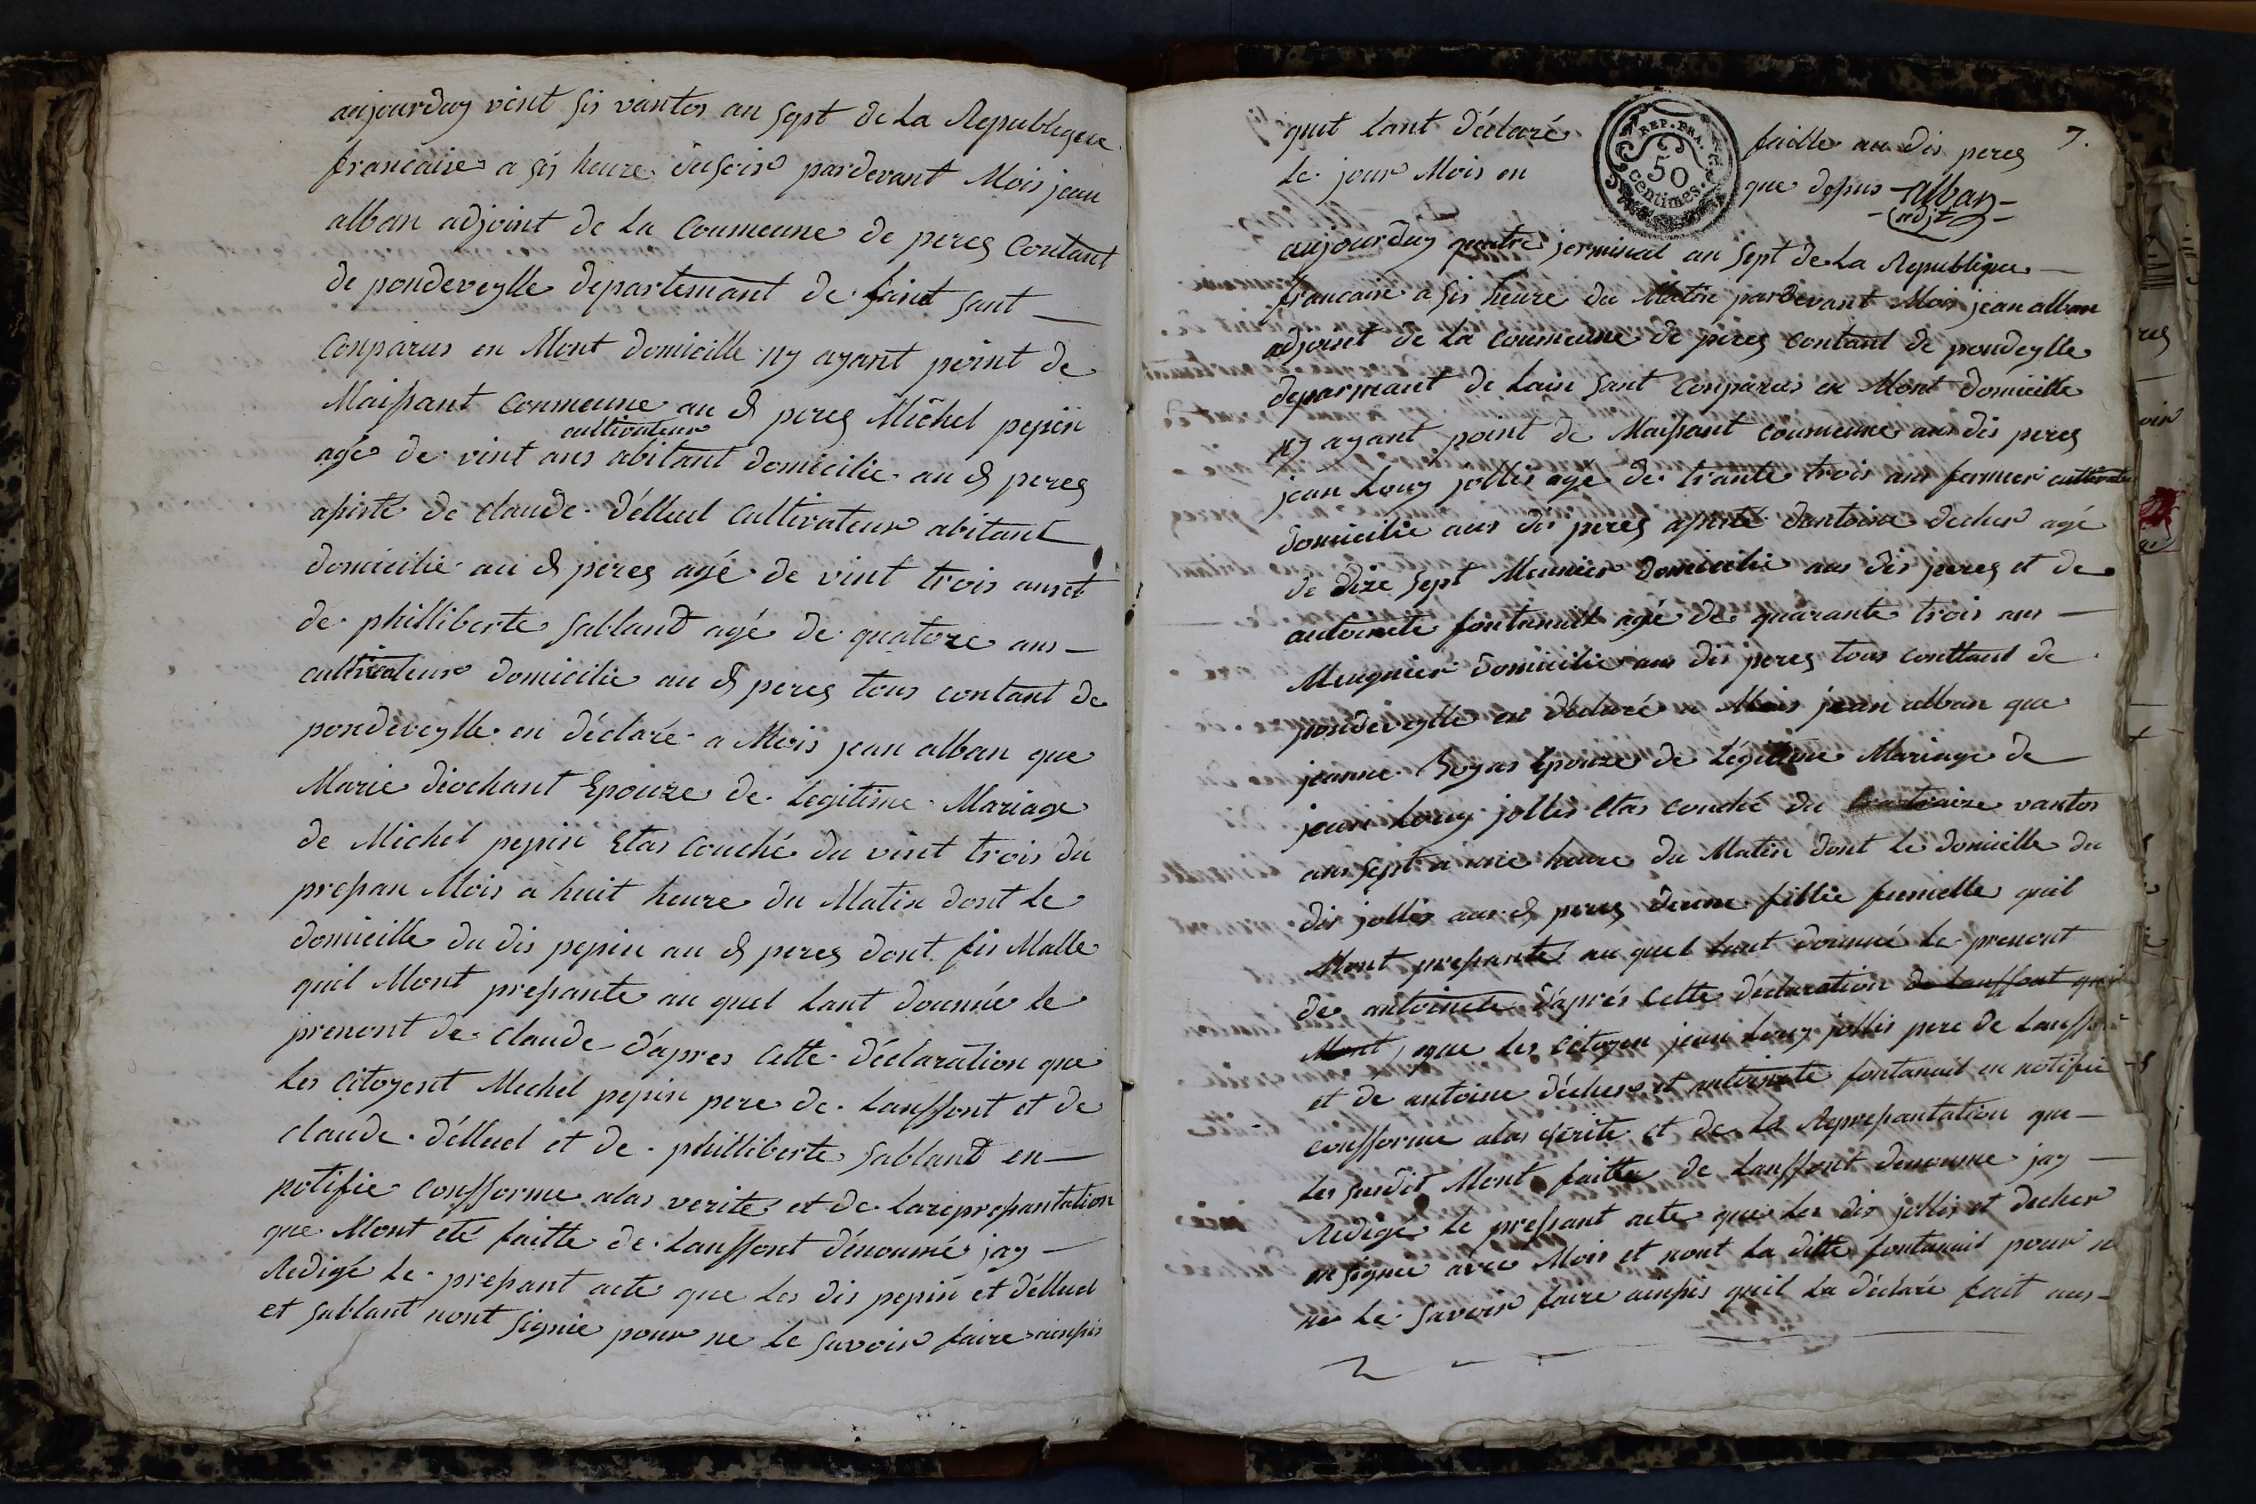 aujourduy vint sis vantos an sept de La Republique
francaise a sis heure du soir pardevant Mois jean
alban adjoint de La Coumeune de peres Contant
de pondeveylle departemant de faint sant —
Conparus en Mont domicille ny ayant point de
Maissant Conmeune au d peres Michel pepin
cultivateur
agé de vint ans abitant domicilie au d peres
asisté de claude délluel cultivateur abitant
domicilie au d peres agé de vint trois ans et
de philliberte sabland agé de quatorze ans —
cultivateur domicilie au d peres tous contant de
pondeveylle en déclaré a Mois jean alban que
Marie diochant Epouze de Legitime Mariage
de Michel pepin Etas Couché du vint trois du
pressan Mois a huit heure du Matin dont Le
domicille du dis pepin au d peres dont fis Malle
quil Mont pressante au quel Lant donnée le
prenont de claude dápres Cette déclaration que
Les Citoyent Mechel pepin pere de Lanffont et de
claude délluel et de philliberte sabland en —
notifie Confforme alas verite et de Larepressantation
que Mont eté faitte de Lanffont dénoumé jay —
Redigé Le pressant acte que Les dis pepin et délluel
et sablant nont signié pour ne Le savoir faire ainssis
quit Lant déclaré faitte au dis peres
7.
Le jour Mois en que dessus alban
adjt
REP. FRA.
50
centimes.
aujourduy quatre jerminal an sept de La Republique —
francaise a sis heure du Matin pardevant Mois jean alban
adjoint de La Coumeune de peres Contant de pondeylle
deparmeant de Lain sant Conparus en Mont domicille
ny ayant point de Maissant Coumeune aus dis peres
jean Louy jollis agé de trante trois ans fermier cultivateur
domicilie aus dis peres asisté dantoine decher agé
de dize sept Meunier domicilie aus dis peres et de
antoinete fontanuit agé de quarante trois ans —
Meugnier domicilie aus dis peres tous conttant de
pondeveylle en déclaré a Mois jean alban que
jeanne Epouze de Légitime Mariage de
jean Louy jollis Etas couché du vantos
ans sept a une heure du Matin dont Le domicille du
dis jollis aus d peres dunne fillie fumelle quil
Mont pressante au quel Lant dounné Le prenont
de antoinete dáprés Cette déclaration de Lanffont quil
Mont, que Les Citoyen jean Louy jollis pere de Lanffont
et de antoine décher et antoinete fontanuit en notifie
confforme alas verite et de La Represantation que —
Les susdit Mont faitte de Lanffont denoume jay —
Redigé Le pressant acte que Les dis jollis et decher
on signée avec Mois et nont La ditte fontanuit pour n
ne Le savoir faire ainsis quil La déclaré fait aus —